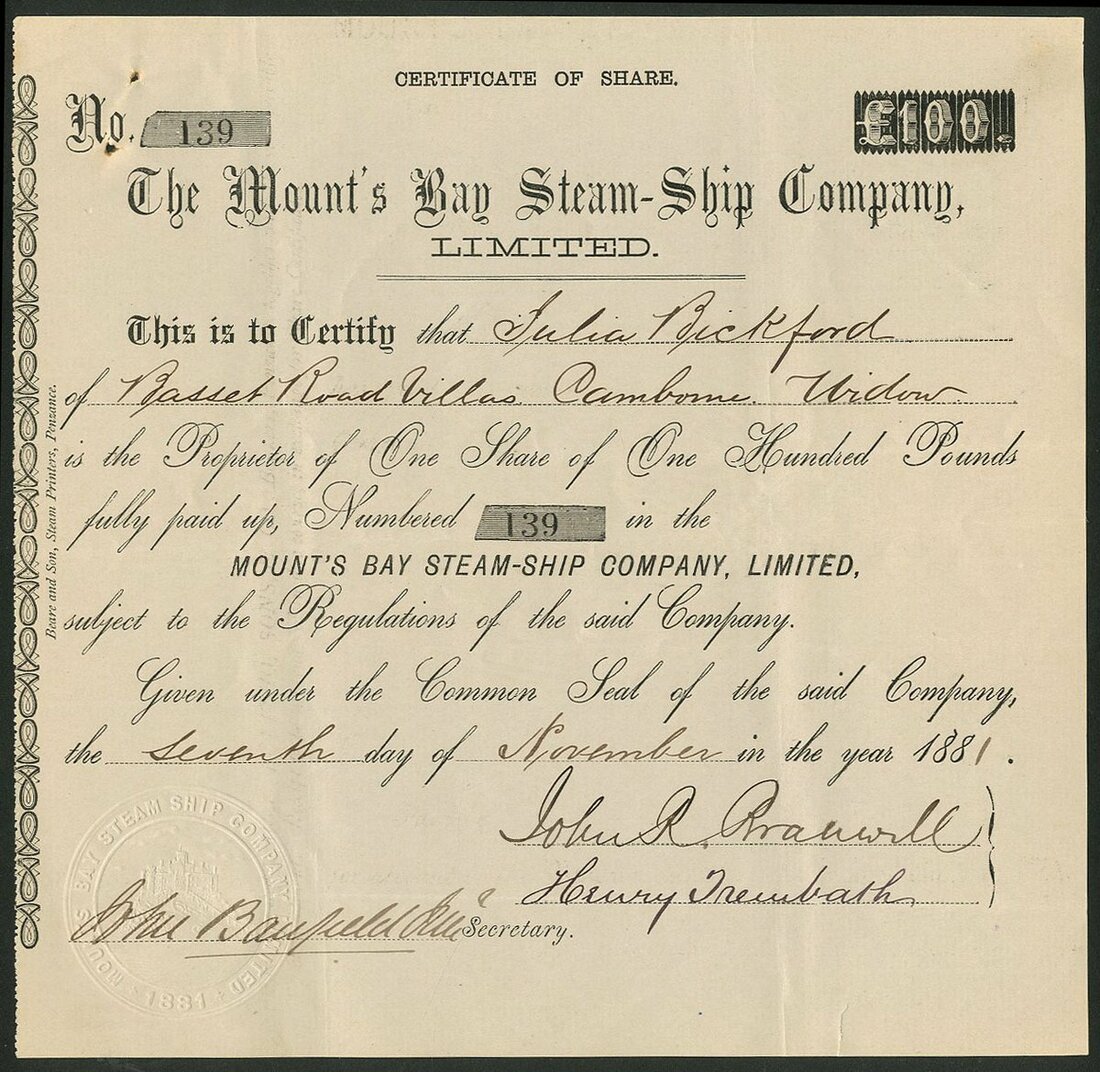 CERTIFICATE OF SHARE.
No. 139
£100.
The Mount's Bay Steam-Ship Company,
LIMITED.
This is to Certify that Julia Bickford
of Basset Road Villas Camborne Widow
is the Proprietor of One Share of One Hundred Pounds
fully paid up, Numbered 139 in the
MOUNT'S BAY STEAM-SHIP COMPANY, LIMITED,
subject to the Regulations of the said Company.
Given under the Common Seal of the said Company,
the seventh day of November in the year 1881.
John R. Branwell
Henry Trembath
John Banfield Junr Secretary.
MOUNTS BAY STEAM SHIP COMPANY LIMITED
1881
Beare and Son, Steam Printers, Penzance.